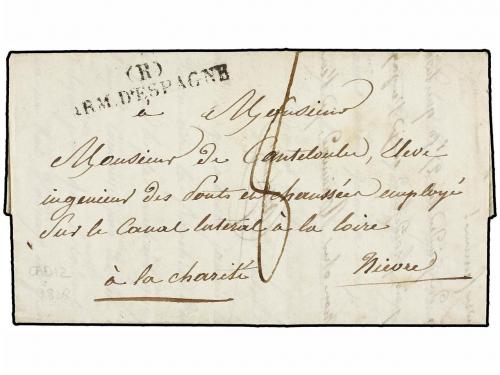 (R)
ARM. D'ESPAGNE
à Monsieur
Monsieur de Canteloube, Eleve
ingenieur des Ponts et chaussées employé
Sur le Canal lateral à la loire
à la charité Nievre
CADIZ
1828